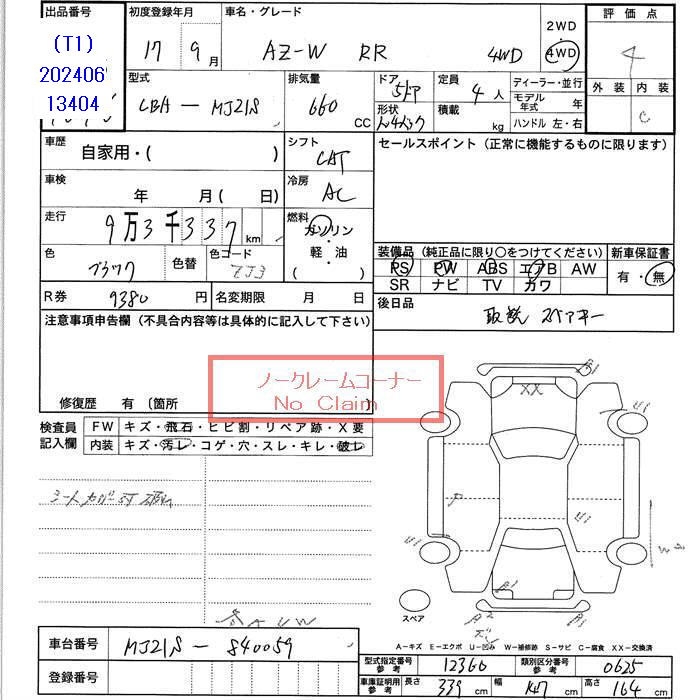 出品番号
(T1)
202406
13404
初度登録年月
17 年 9 月
車名・グレード
AZ-W RR 4WD
2WD
4WD
評価点
4
外装 内装
C
型式
CBA - MJ21S
排気量
660 CC
ドア
5ドア
形状
定員
4 人
積載
kg
ディーラー・並行
モデル年式 年
ハンドル 左・右
車歴
自家用・( )
シフト
CAT
セールスポイント (正常に機能するものに限ります)
車検
年 月 ( 日)
冷房
AC
走行
9万3千337 km
燃料
ガソリン
軽・油
( )
色
ブラック
色替
色コード
ZJ3
装備品 (純正品に限り○をつけてください)
PS PW ABS エアB AW
SR ナビ TV カワ
新車保証書
有・無
R券 9380 円
名変期限 月 日
後日品
取説 スペアキー
注意事項申告欄 (不具合内容等は具体的に記入して下さい)
ノークレームコーナー
No Claim
修復歴 有 〔箇所
検査員記入欄
FW キズ・飛石・ヒビ割・リペア跡・X要
内装 キズ・汚レ・コゲ・穴・スレ・キレ・破レ
XX
スペア
A-キズ E-エクボ U-凹み W-補修跡 S-サビ C-腐食 XX-交換済
車台番号 MJ21S - 840059
登録番号
型式指定番号 参考 12360
類別区分番号 参考 0625
車庫証明用 参考
長さ 339 cm 幅 147 cm 高さ 164 cm